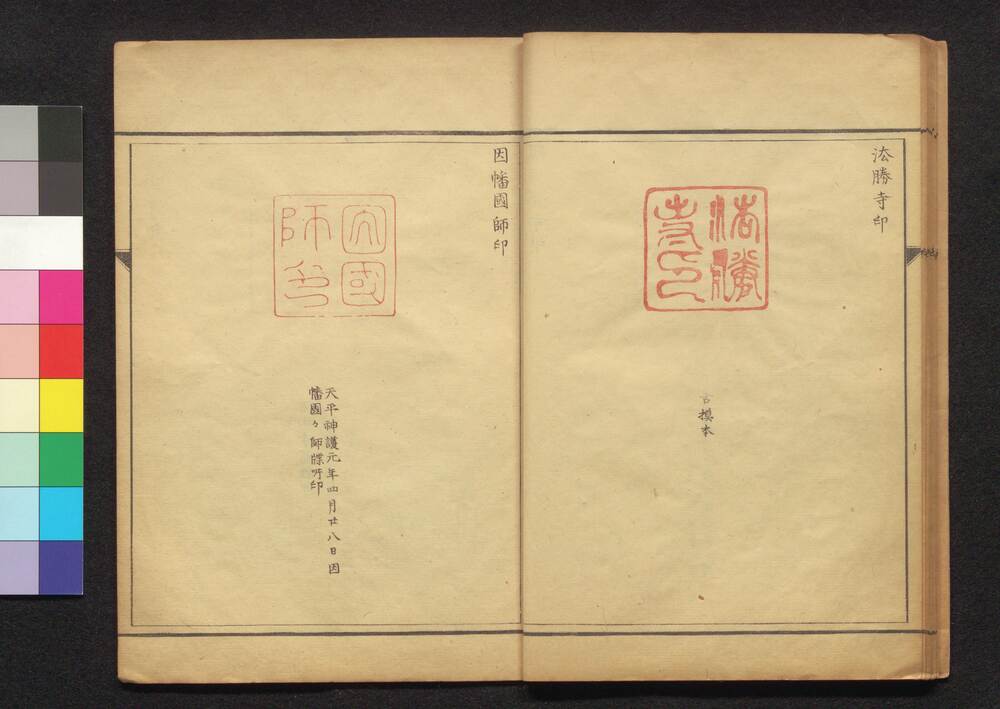 法勝寺印
法勝
寺印
古摸本
因幡國師印
国國
師印
天平神護元年四月廿八日因
幡國々師牒所印